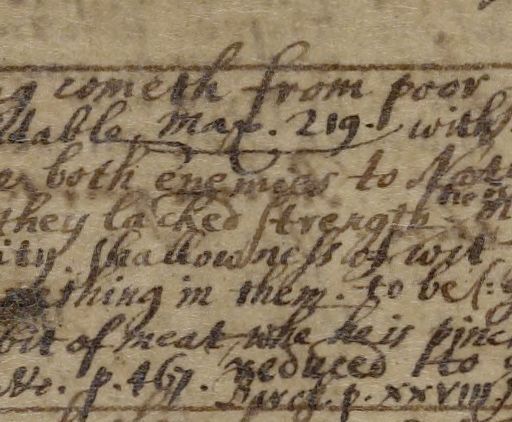 ng cometh from poor
ltable. Max. 219. with
both enemies to Nat
they lacked strength the
ity. shallowness of wit
nothing in them. to be
bit of meat, whe he is pinc
No. p. 467. reduced to
Barcl. p. xxviii.